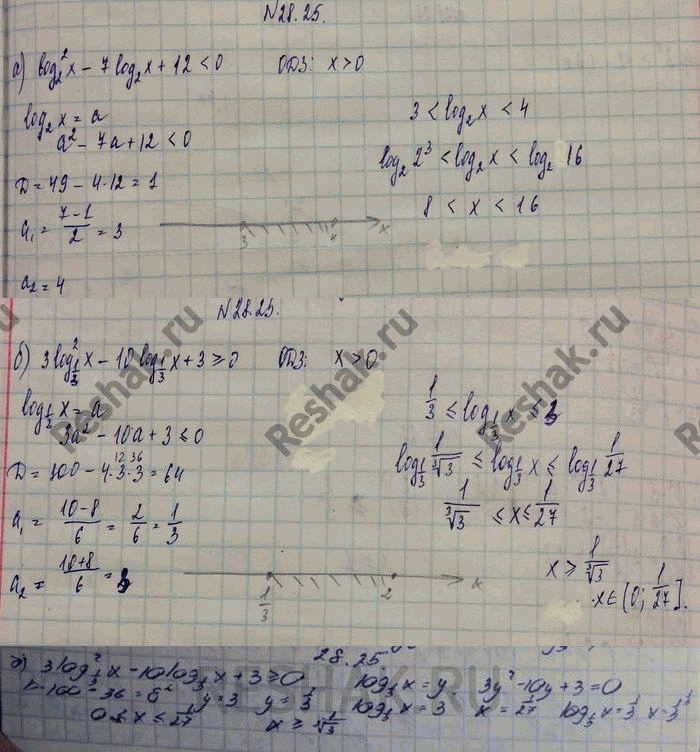 N28.25.
а) log₂²x − 7log₂x + 12 < 0   ОДЗ: x > 0
log₂x = a
a² − 7a + 12 < 0
D = 49 − 4·12 = 1
a₁ = (7−1)/2 = 3
3 4 x
a₂ = 4
3 < log₂x < 4
log₂2³ < log₂x < log₂16
8 < x < 16
N28.25.
б) 3log²_{1/3}x − 10log_{1/3}x + 3 ≥ 0   ОДЗ: x > 0
log_{1/3}x = a
3a² − 10a + 3 ≤ 0
12 36
D = 100 − 4·3·3 = 64
a₁ = (10−8)/6 = 2/6 = 1/3
a₂ = (10+8)/6 = 3
1/3 2 x
1/3 ≤ log_{1/3}x ≤ 3
log_{1/3} 1/∛3 ≤ log_{1/3}x ≤ log_{1/3} 1/27
1/∛3 ≤ x ≤ 1/27
x ≥ 1/∛3
x ∈ (0; 1/27].
28.25
3log²_{1/3}x − 10log_{1/3}x + 3 ≥ 0   log_{1/3}x = y   3y² − 10y + 3 = 0
100 − 36 = 8²   y = 3   y = 1/3   log_{1/3}x = 3   x = 1/27   log_{1/3}x = 1/3
0 < x ≤ 1/27   x ≥ 1/∛3
Reshak.ru
Reshak.ru
RESHAK.RU